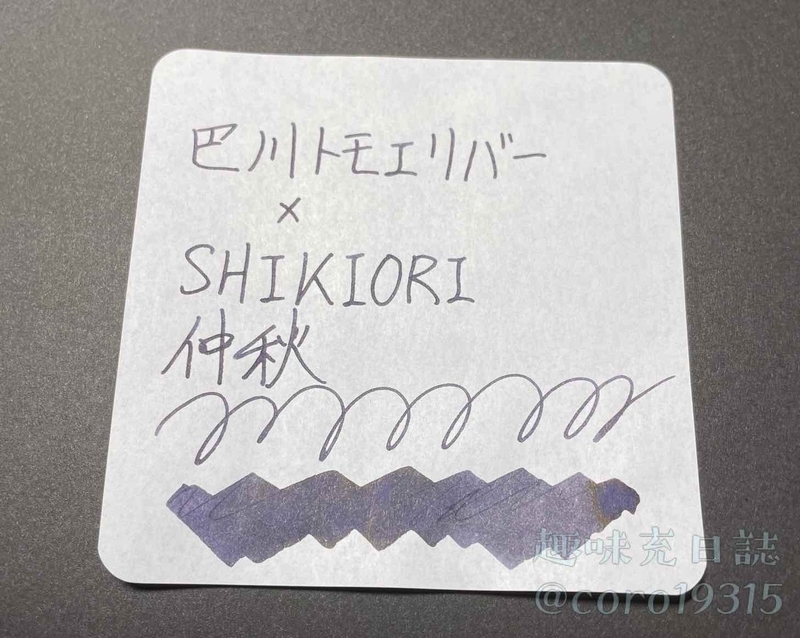 巴川トモエリバー
×
SHIKIORI
仲秋
趣味充日誌
@coro19315